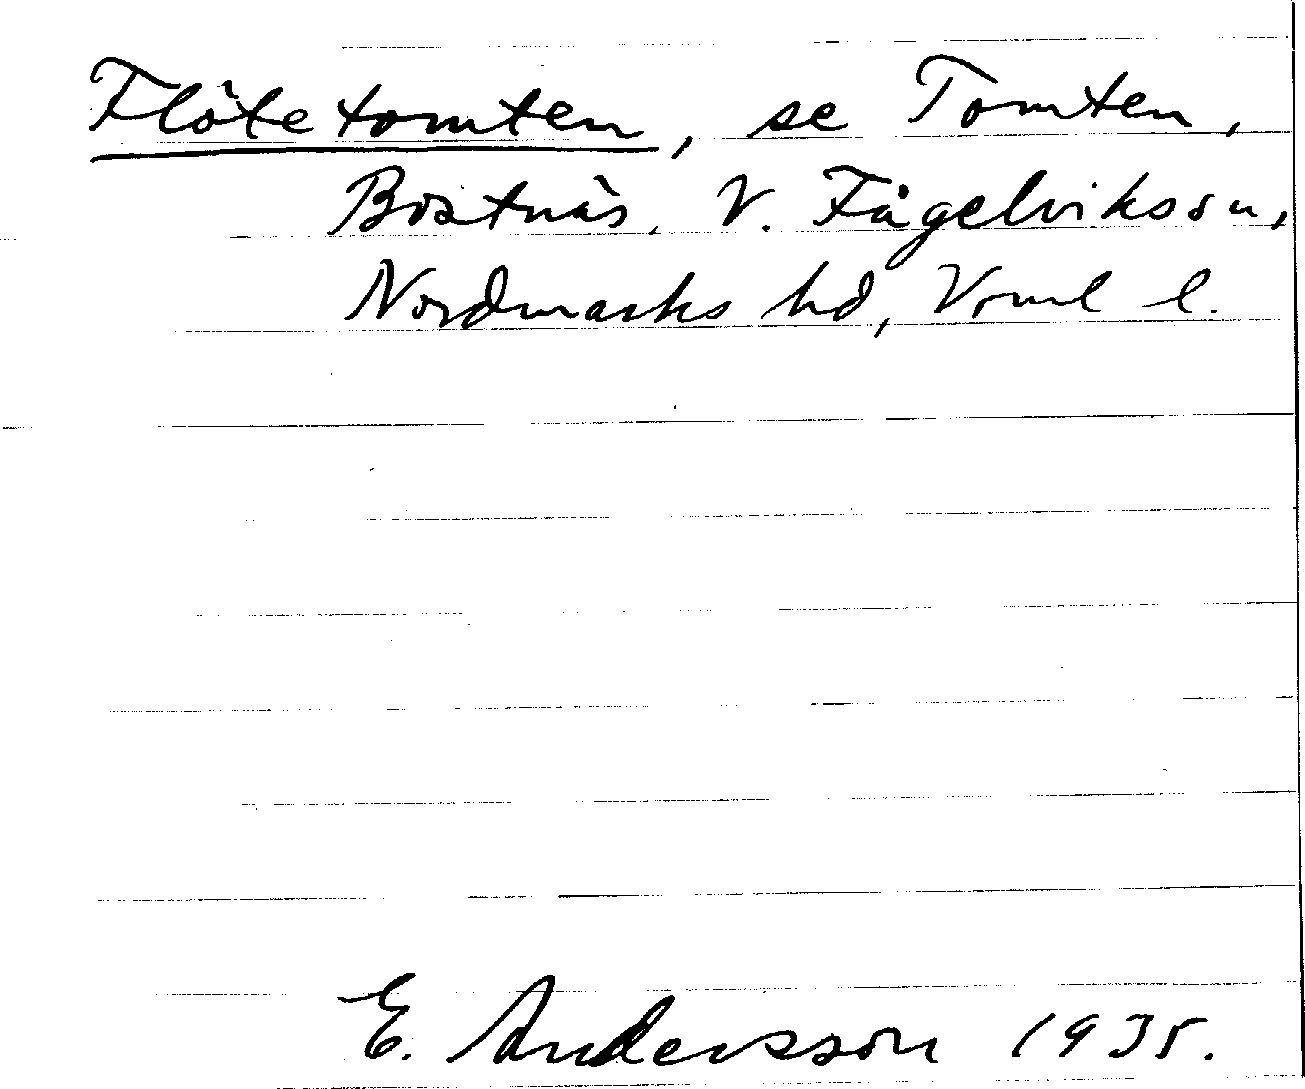 Flötetomten, se Tomten,
Bostnäs, V. Fågelvikssn,
Nordmarks hd, Vrml l.
E. Andersson 1935.